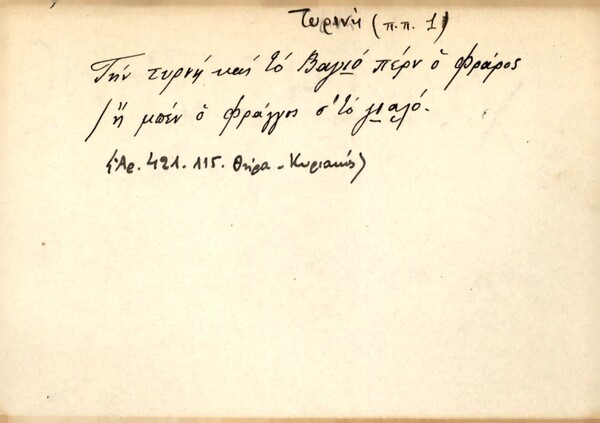 Τυρινή (π.π. 1)
Τήν τυρνή καί τό Βαγιό πέρν ὁ Φράρος
/ἤ μπέν ὁ φράγγος σ' τό γιαλό.
(Ἀρ. 421. 115. Θήρα - Κυριακής)